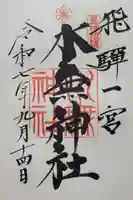 飛騨一宮
水無神社
令和七年九月十四日